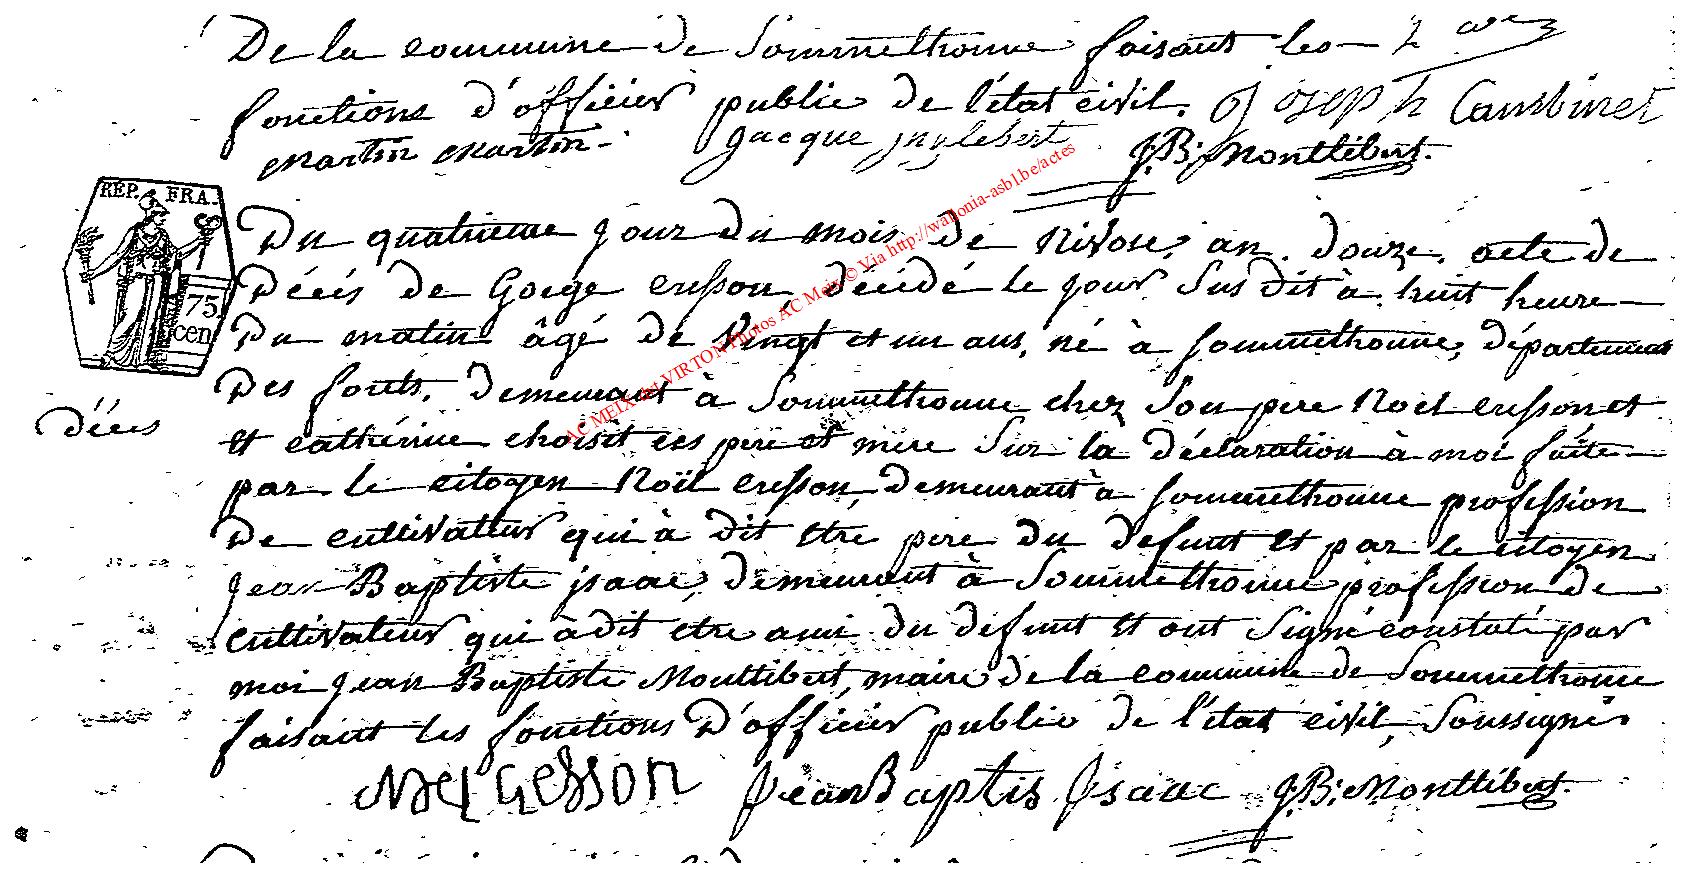 De la commune de Sommethonne faisant les
fonctions d'officier public de l'état civil. Joseph Cambinet
Martin Martin. Jacque jnglebert J:B: Monttibert.
REP. FRA.
75
cen
Du quatrieme jour du mois de Nivose, an. douze. acte de
Décés de Gorge cresson, décidé le jour Sus dit à huit heure
Du matin âgé de Vingt et un ans, né à Sommethonne, département
Des forets, demeurant à Sommethonne chez Son pere Noël cresson et
Décés
et cathérine choisit ces pere et mere Sur la déclaration à moi faite
par le citoyen Noël cresson, demeurant à Sommethonne profession
De cultivateur qui à dit etre pere du defunt et par le citoyen
jean Baptiste jsaac, demeurant à Sommethonne profession de
cultivateur qui à dit etre ami du defunt et ont Signé constaté par
moi jean Baptiste Monttibert, maire de la commune de Sommethonne
faisant les fonctions D'officier public de l'état civil, Soussigné
Noel Cresson Jean Baptis Jsaac J:B: Monttibert.
AC MEIX dvt VIRTON Photos AC Meix © Via http://wallonia-asbl.be/actes